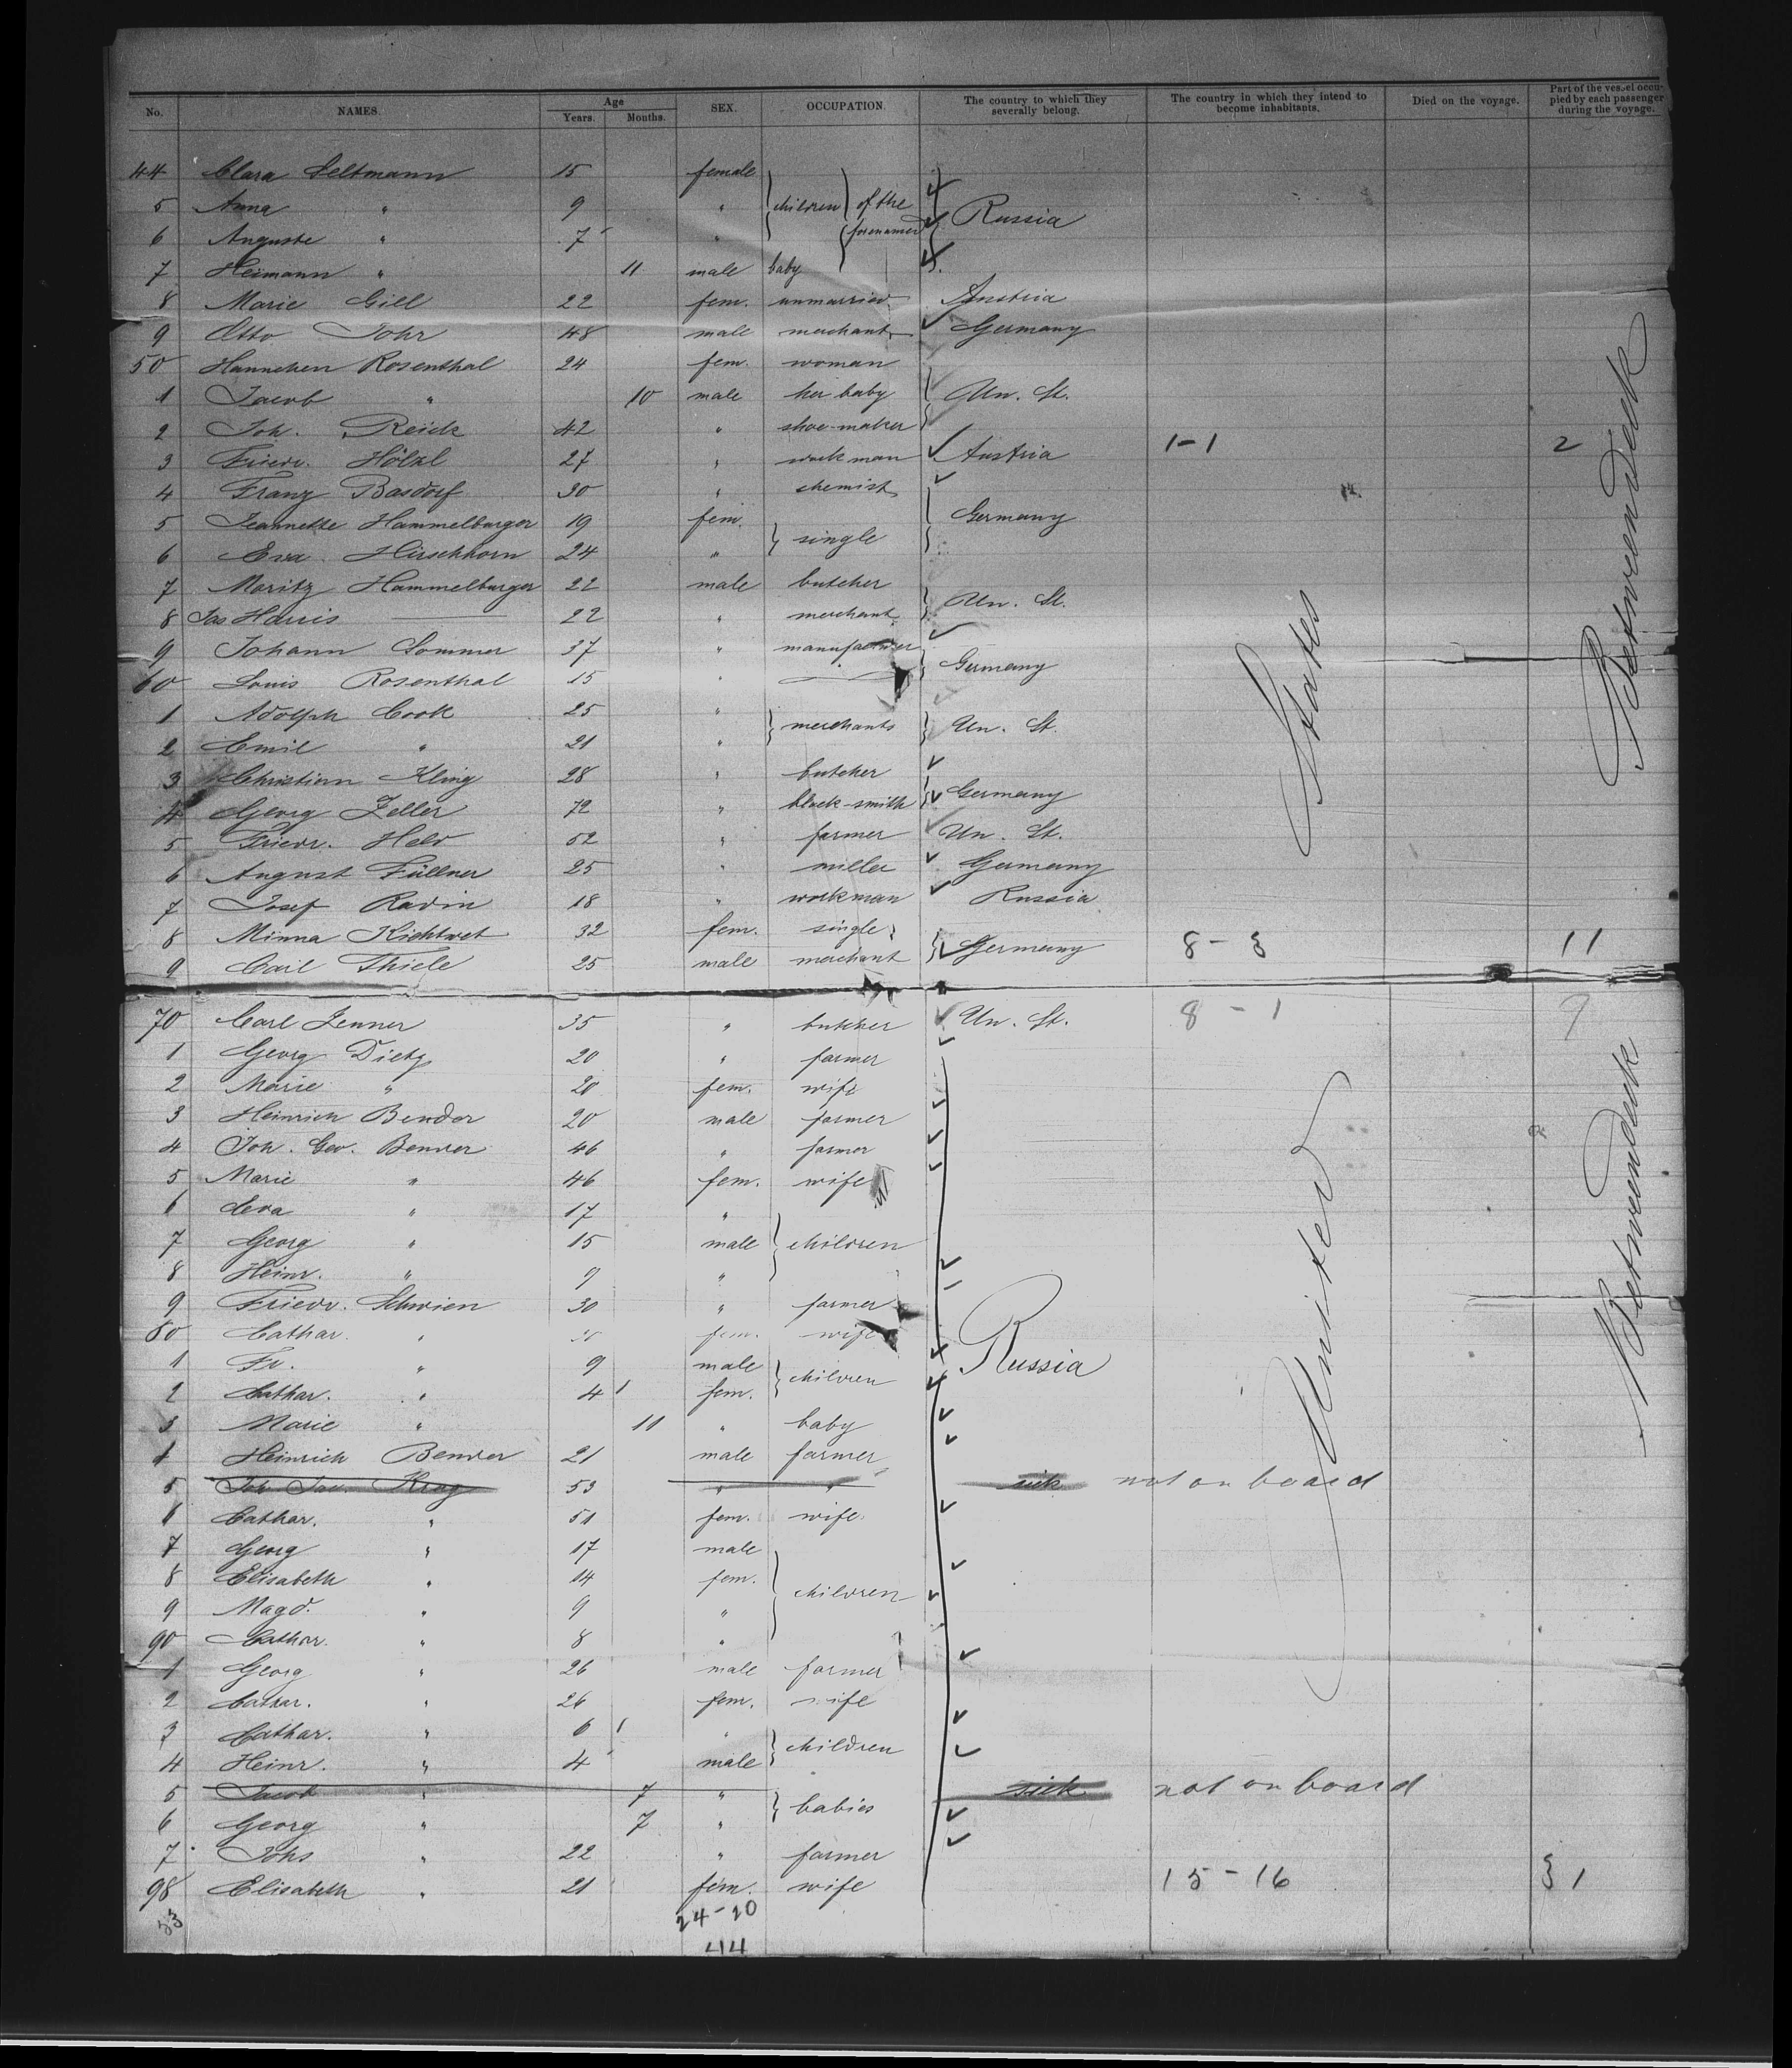 No. NAMES. Age Years. Months. SEX. OCCUPATION. The country to which they severally belong. The country in which they intend to become inhabitants. Died on the voyage. Part of the vessel occupied by each passenger during the voyage.
44 Clara Seltmann 15 female children of the forenamed
5 Anna " 9 " Russia
6 Auguste " 7 "
7 Heimann " 11 male baby
8 Marie Gill 22 fem. unmarried Austria
9 Otto Johr 48 male merchant Germany
50 Hannchen Rosenthal 24 fem. woman
1 Jacob " 10 male her baby Un. St.
2 Joh. Reick 42 " shoe-maker
3 Friedr. Hölzl 27 " workman Austria 1-1 2
4 Franz Basdorf 30 " chemist
5 Jeannette Hammelburger 19 fem. single Germany
6 Eva Hirschhorn 24 "
7 Moritz Hammelburger 22 male butcher Un. St.
8 Jas Harris 22 " merchant
9 Johann Sommer 37 " manufacturer Germany
60 Louis Rosenthal 15 "
1 Adolph Cook 25 " merchants Un. St.
2 Emil " 21 "
3 Christian Kling 28 " butcher
4 Georg Zeller 72 " black-smith Germany
5 Friedr. Held 52 " farmer Un. St.
6 August Füllner 25 " miller Germany
7 Josef Radin 18 " workman Russia
8 Minna 32 fem. single
9 Carl Thiele 25 male merchant Germany 8-3 11
70 Carl Zenner 35 " butcher Un. St. 8-1 9
1 Georg Dietz 20 " farmer
2 Marie " 20 fem. wife
3 Heinrich Bender 20 male farmer
4 Joh. Geo. Bender 46 " farmer
5 Marie " 46 fem. wife
6 Leva " 17 " children
7 Georg " 15 male
8 Heinr. " 9 "
9 Friedr. Schwien 30 " farmer
80 Cathar. " fem. wife
1 Fr. " 9 male children Russia
2 Cathar. " 4 fem.
3 Marie " 11 " baby
4 Heinrich Bender 21 male farmer
5 Joh Jac. Krug 53 " " sick not on board
6 Cathar. " 51 fem. wife
7 Georg " 17 male children
8 Elisabeth " 14 fem.
9 Magd. " 9 "
90 Cathar. " 8 "
1 Georg " 26 male farmer
2 Cathar. " 26 fem. wife
3 Cathar. " 6 " children
4 Heinr. " 4 male
5 Jacob " 7 " babies sick not on board
6 Georg " 7 "
7 Johs " 22 " farmer
98 Elisabeth " 21 fem. wife 15-16 } 1
53 24-20
44
United States
Betweendeck
Betweendeck